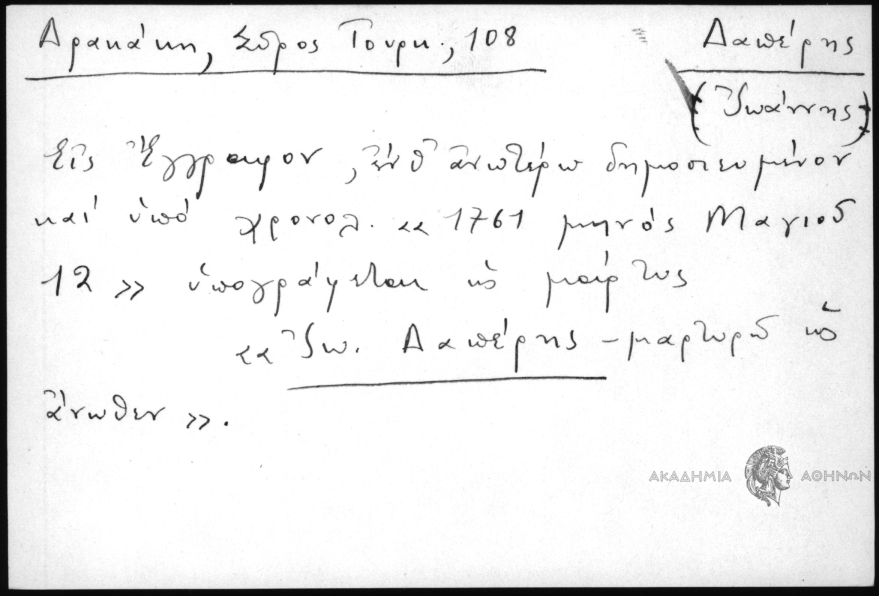 Δρακάκη, Σῦρος Τουρκ., 108
Δαπέρης
(Ἰωάννης)
Εἰς Ἔγγραφον, ἐνθ' ἀνωτέρω δημοσιευμένον
καί ὑπό χρονολ. «1761 μηνός Μαγιοῦ
12» ὑπογράφεται ὡς μάρτυς
«Ἰω. Δαπέρης - μαρτυρῶ ὡς
ἄνωθεν».
ΑΚΑΔΗΜΙΑ ΑΘΗΝΩΝ